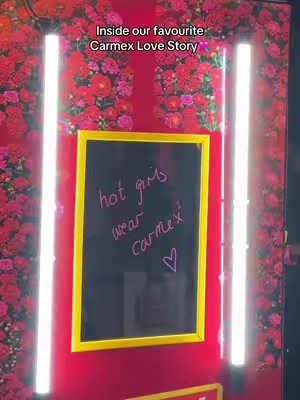 Inside our favourite
Carmex Love Story
hot girls
wear
carmex